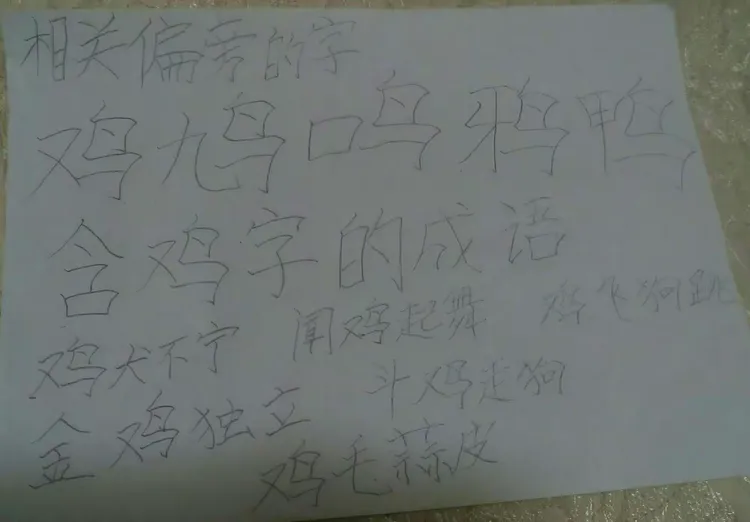 相关偏旁的字
鸡鸠鸣鸦鸭
含鸡字的成语
鸡犬不宁 闻鸡起舞 鸡飞狗跳
金鸡独立 斗鸡走狗
鸡毛蒜皮